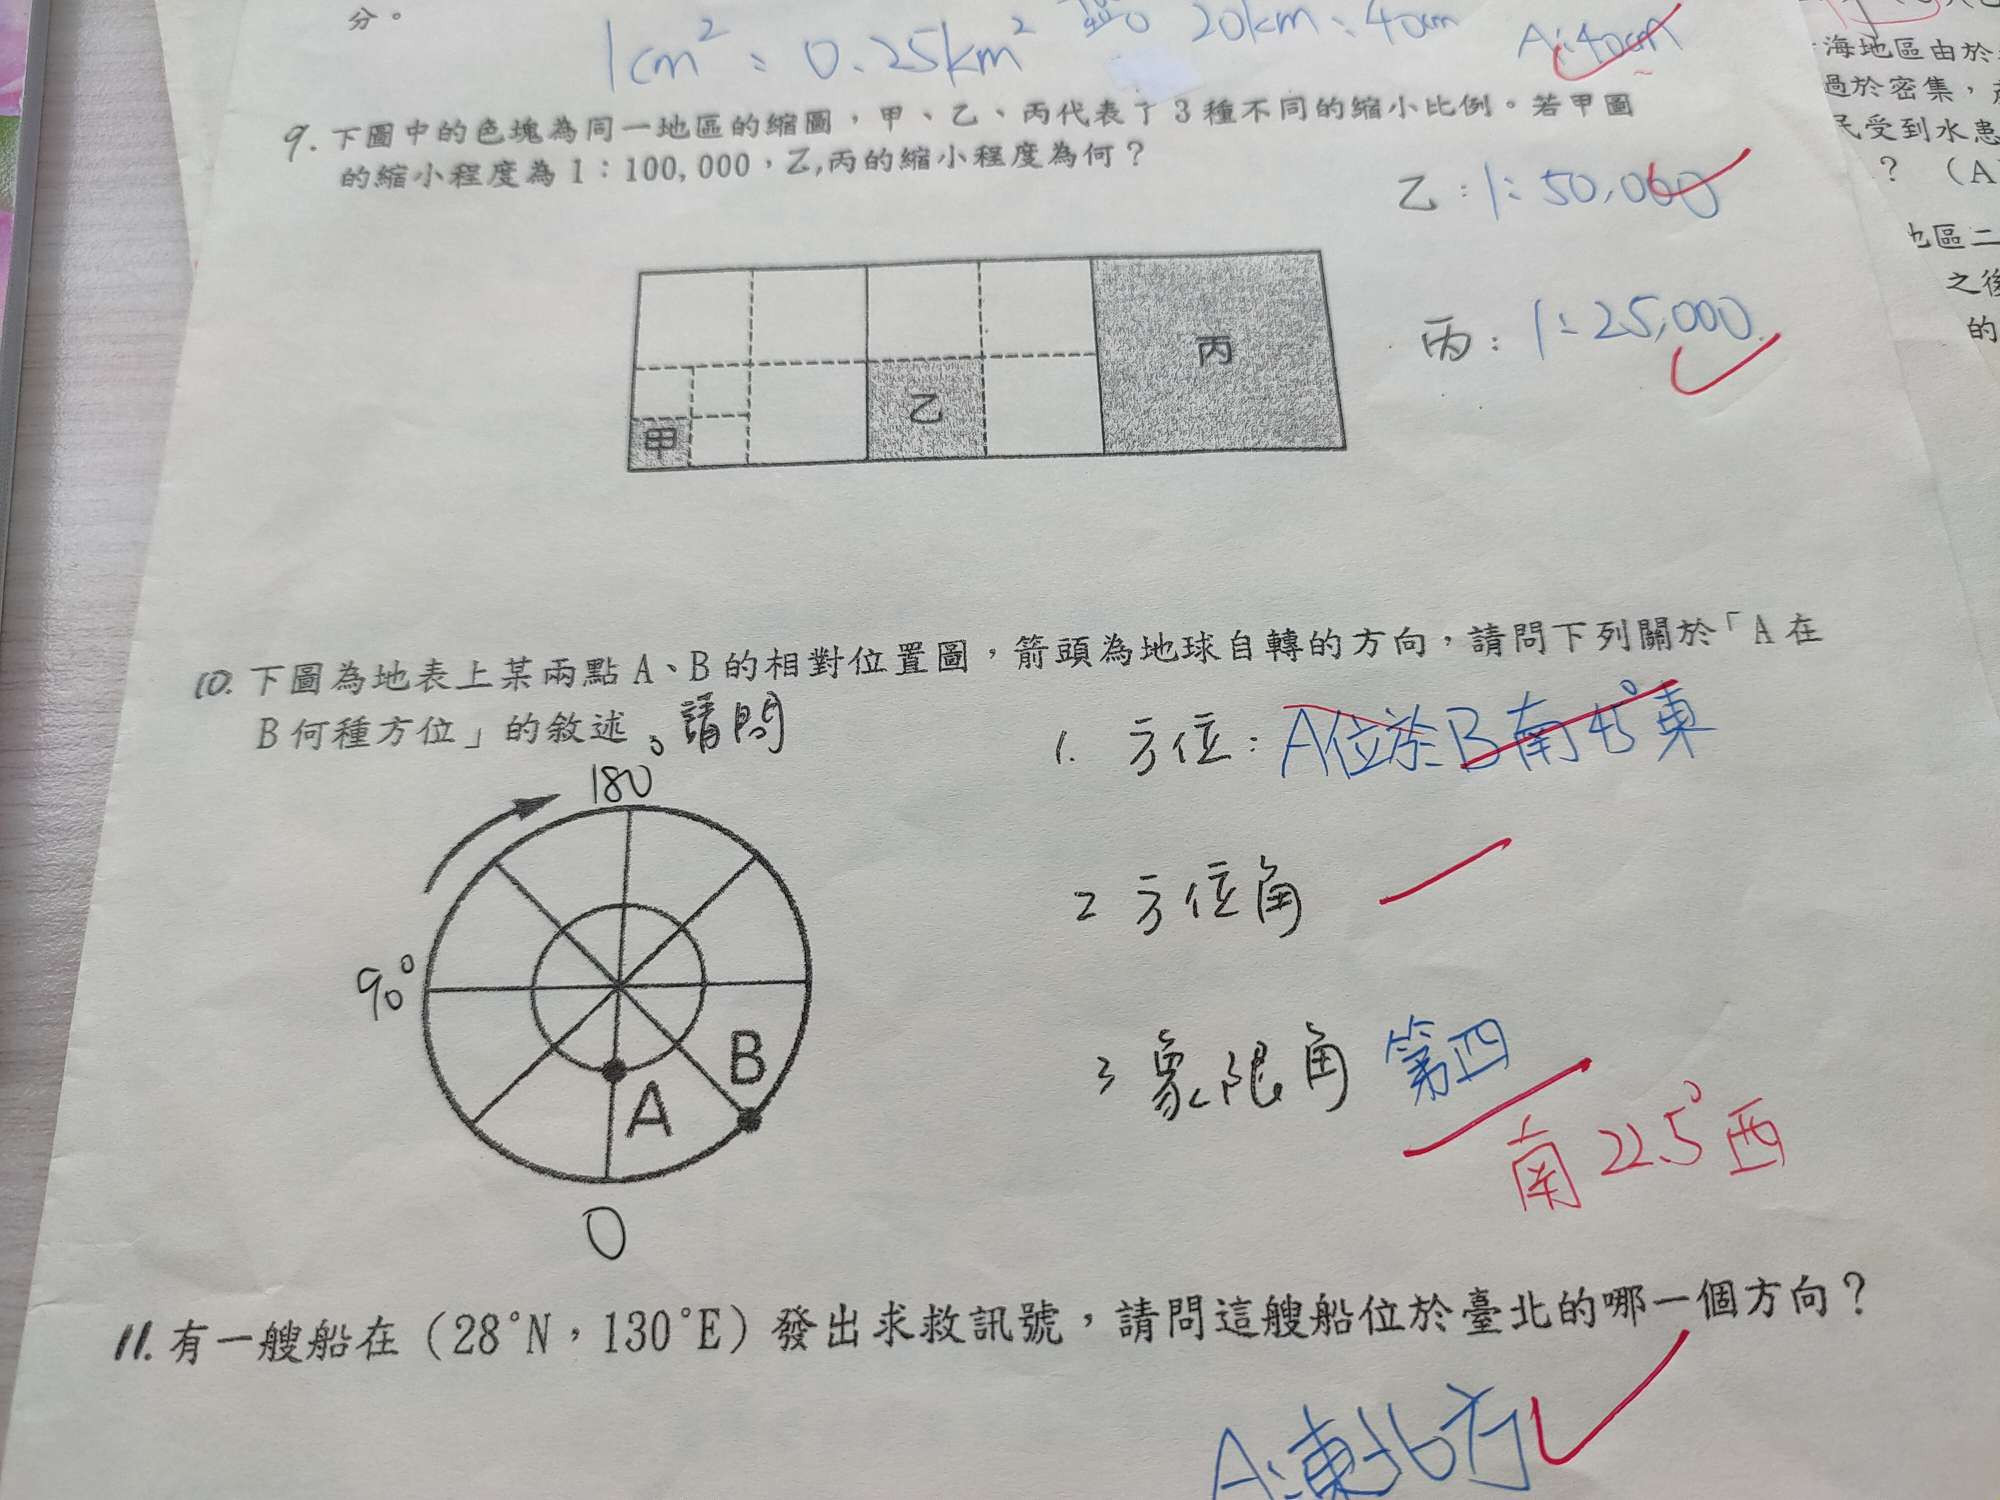 分。
1cm² : 0.25km² 20km : 40cm A:40cm
9. 下圖中的色塊為同一地區的縮圖，甲、乙、丙代表了3種不同的縮小比例。若甲圖
的縮小程度為1：100,000，乙,丙的縮小程度為何？
乙：1:50,000
丙：1:25,000
甲
乙
丙
10. 下圖為地表上某兩點A、B的相對位置圖，箭頭為地球自轉的方向，請問下列關於「A在
B何種方位」的敘述。請問
1. 方位：A位於B南45°東
2 方位角
3 象限角 第四
南22.5°西
180°
90°
A
B
0
11. 有一艘船在（28°N，130°E）發出求救訊號，請問這艘船位於臺北的哪一個方向？
A:東北方
海地區由於
過於密集，
民受到水患
？（A
地區二
之後
的